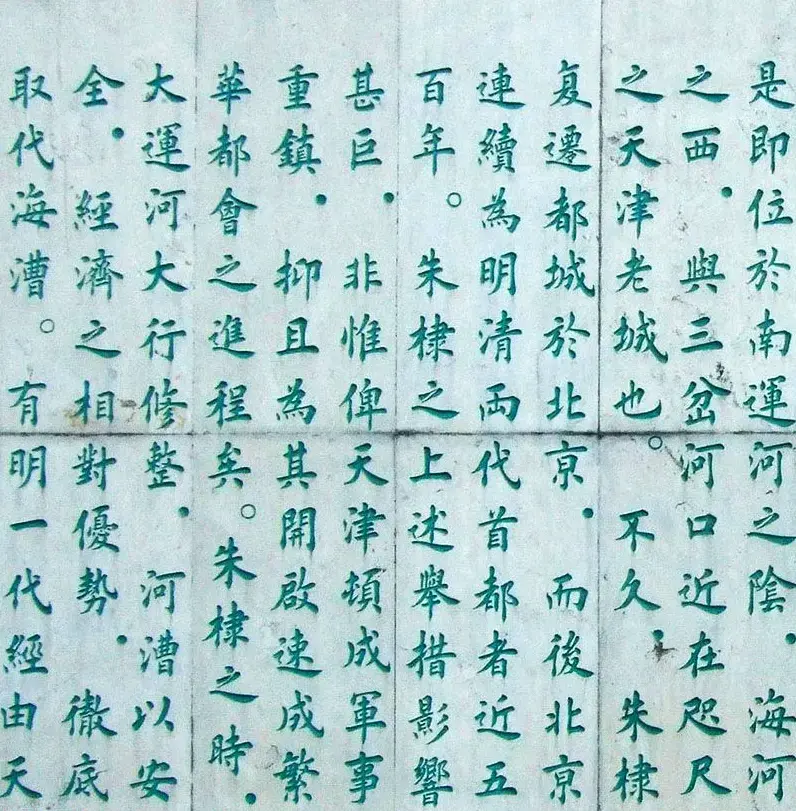 是即位於南運河之陰．海河
之西．與三岔河口近在咫尺
之天津老城也。不久．朱棣
复遷都城於北京．而後北京
連續為明清兩代首都者近五
百年。朱棣之上述舉措影響
甚巨．非惟俾天津頓成軍事
重鎮．抑且為其開啟速成繁
華都會之進程矣。朱棣之時．
大運河大行修整．河漕以安
全．經濟之相對優勢．徹底
取代海漕。有明一代經由天